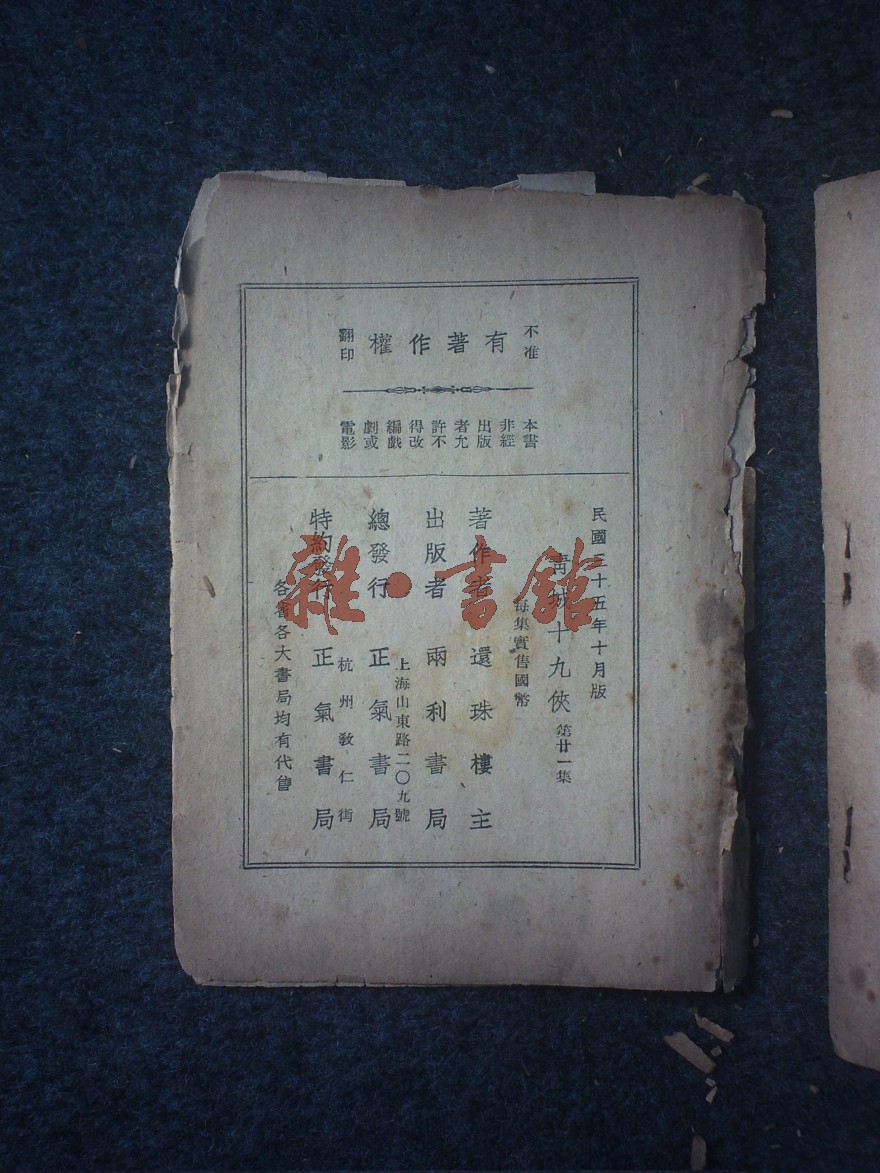 有著作權
不准
翻印
本書
非經
出版
者允
許不
得改
編戲
劇或
電影
民國三十五年十月版
青城十九俠 第廿一集
每集實售國幣
著作者 還珠樓主
出版者 兩利書局
上海山東路二〇九號
總發行 正氣書局
杭州教仁街
特約發行 正氣書局
各省各大書局均有代售
雜·書館